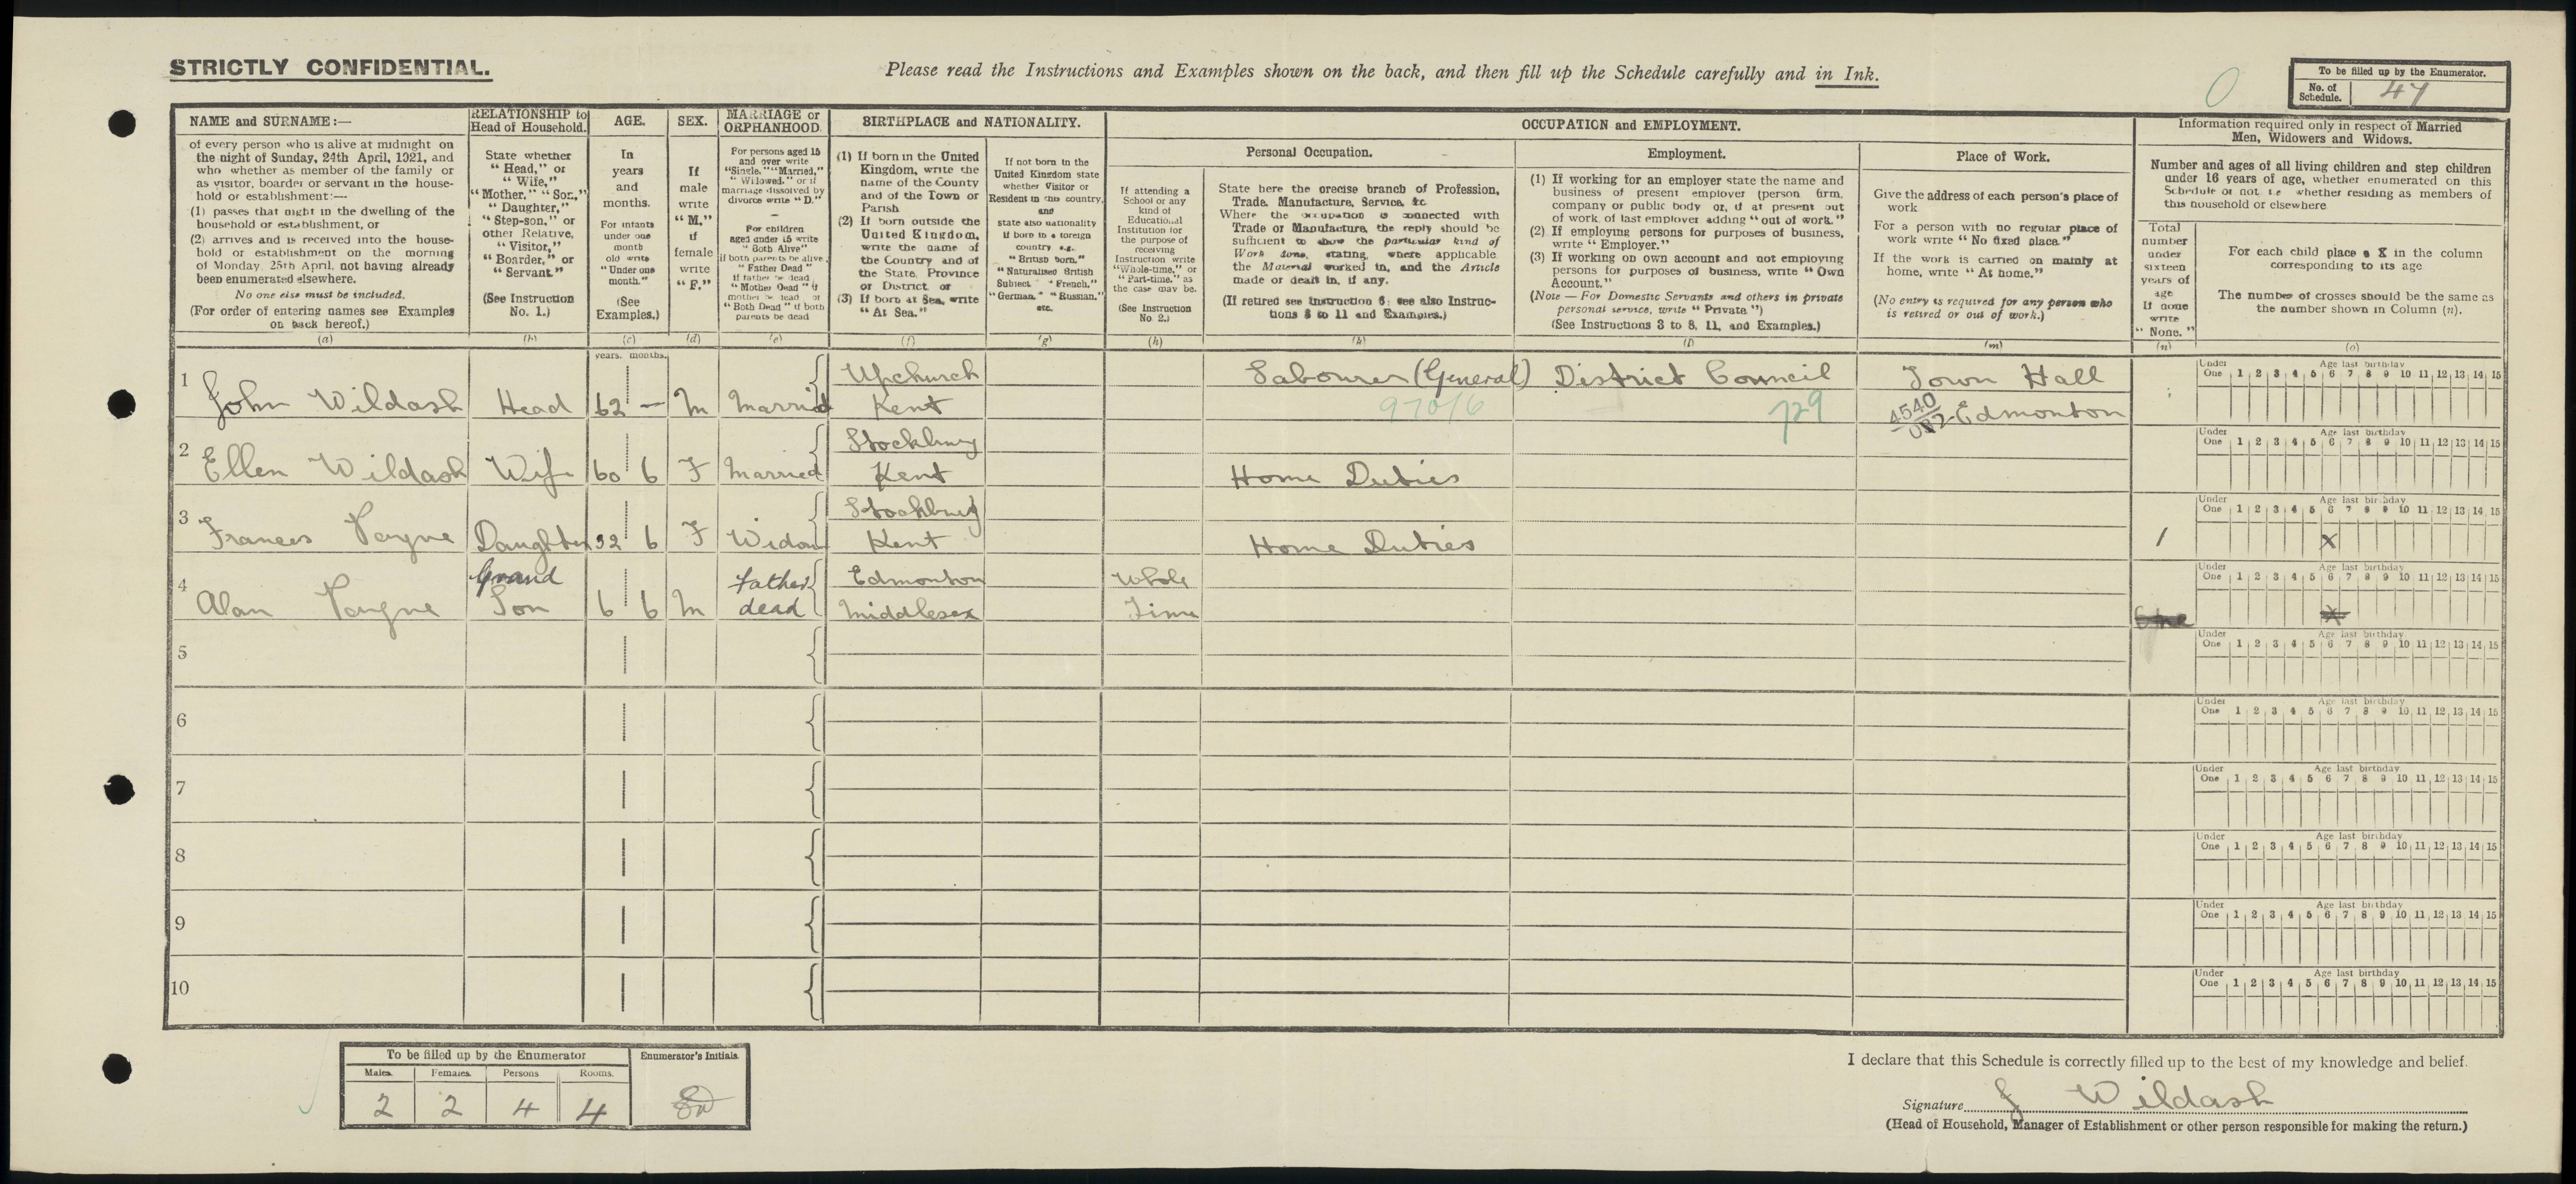 STRICTLY CONFIDENTIAL.
Please read the Instructions and Examples shown on the back, and then fill up the Schedule carefully and in Ink.
To be filled up by the Enumerator.
No. of Schedule. 47
NAME and SURNAME:—
of every person who is alive at midnight on
the night of Sunday, 24th April, 1921, and
who whether as member of the family or
as visitor, boarder or servant in the house-
hold or establishment:—
(1) passes that night in the dwelling of the
household or establishment, or
(2) arrives and is received into the house-
hold or establishment on the morning
of Monday, 25th April, not having already
been enumerated elsewhere.
No one else must be included.
(For order of entering names see Examples
on back hereof.)
(a)
RELATIONSHIP to
Head of Household.
State whether
"Head," or
"Wife,"
"Mother," "Son,"
"Daughter,"
"Step-son," or
other Relative,
"Visitor,"
"Boarder," or
"Servant."
(See Instruction
No. 1.)
(b)
AGE.
In
years
and
months.
For infants
under one
month
old write
"Under one
month."
(See
Examples.)
(c)
SEX.
If
male
write
"M."
if
female
write
"F."
(d)
MARRIAGE or
ORPHANHOOD.
For persons aged 15
and over write
"Single," "Married,"
"Widowed," or if
marriage dissolved by
divorce write "D."
—
For children
aged under 15 write
"Both Alive"
if both parents be alive,
"Father Dead"
if father be dead,
"Mother Dead" if
mother be dead or
"Both Dead" if both
parents be dead
(e)
BIRTHPLACE and NATIONALITY.
(1) If born in the United
Kingdom, write the
name of the County
and of the Town or
Parish
(2) If born outside the
United Kingdom,
write the name of
the Country and of
the State, Province
or District, or
(3) If born at Sea, write
"At Sea."
(f)
If not born in the
United Kingdom state
whether Visitor or
Resident in this country,
and
state also nationality
if born in a foreign
country e.g.
"British born,"
"Naturalised British
Subject" "French,"
"German," "Russian,"
etc.
(g)
OCCUPATION and EMPLOYMENT.
Personal Occupation.
If attending a
School or any
kind of
Educational
Institution for
the purpose of
receiving
Instruction write
"Whole-time," or
"Part-time," as
the case may be.
(See Instruction
No 2.)
(h)
State here the precise branch of Profession,
Trade, Manufacture, Service, &c
Where the occupation is connected with
Trade or Manufacture, the reply should be
sufficient to show the particular kind of
Work done, stating, where applicable
the Material worked in, and the Article
made or dealt in, if any.
(If retired see Instruction 6; see also Instruc-
tions 8 to 11 and Examples.)
(k)
Employment.
(1) If working for an employer state the name and
business of present employer (person firm,
company or public body or, if at present out
of work, of last employer adding "out of work."
(2) If employing persons for purposes of business,
write "Employer."
(3) If working on own account and not employing
persons for purposes of business, write "Own
Account."
(Note — For Domestic Servants and others in private
personal service, write "Private")
(See Instructions 3 to 8, 11, and Examples.)
(l)
Place of Work.
Give the address of each person's place of
work
For a person with no regular place of
work write "No fixed place."
If the work is carried on mainly at
home, write "At home."
(No entry is required for any person who
is retired or out of work.)
(m)
Information required only in respect of Married
Men, Widowers and Widows.
Number and ages of all living children and step children
under 16 years of age, whether enumerated on this
Schedule or not i.e whether residing as members of
this household or elsewhere
Total
number
under
sixteen
years of
age
If none
write
"None."
(n)
For each child place a X in the column
corresponding to its age
The number of crosses should be the same as
the number shown in Column (n).
(o)
years. months.
Under One Age last birthday 1 2 3 4 5 6 7 8 9 10 11 12 13 14 15
1 John Wildash Head 62 — M Married Upchurch Kent Labourer (General) District Council Town Hall Edmonton
97016 729 4540
Under One Age last birthday 1 2 3 4 5 6 7 8 9 10 11 12 13 14 15
2 Ellen Wildash Wife 60 6 F Married Stockbury Kent Home Duties
Under One Age last birthday 1 2 3 4 5 6 7 8 9 10 11 12 13 14 15
3 Frances Payne Daughter 32 6 F Widow Stockbury Kent Home Duties 1 X
Under One Age last birthday 1 2 3 4 5 6 7 8 9 10 11 12 13 14 15
4 Alan Payne Grand Son 6 6 M Father dead Edmonton Middlesex Whole Time One X
Under One Age last birthday 1 2 3 4 5 6 7 8 9 10 11 12 13 14 15
5
Under One Age last birthday 1 2 3 4 5 6 7 8 9 10 11 12 13 14 15
6
Under One Age last birthday 1 2 3 4 5 6 7 8 9 10 11 12 13 14 15
7
Under One Age last birthday 1 2 3 4 5 6 7 8 9 10 11 12 13 14 15
8
Under One Age last birthday 1 2 3 4 5 6 7 8 9 10 11 12 13 14 15
9
Under One Age last birthday 1 2 3 4 5 6 7 8 9 10 11 12 13 14 15
10
Under One Age last birthday 1 2 3 4 5 6 7 8 9 10 11 12 13 14 15
To be filled up by the Enumerator
Males. Females. Persons Rooms.
2 2 4 4
Enumerator's Initials.
I declare that this Schedule is correctly filled up to the best of my knowledge and belief.
Signature J Wildash
(Head of Household, Manager of Establishment or other person responsible for making the return.)